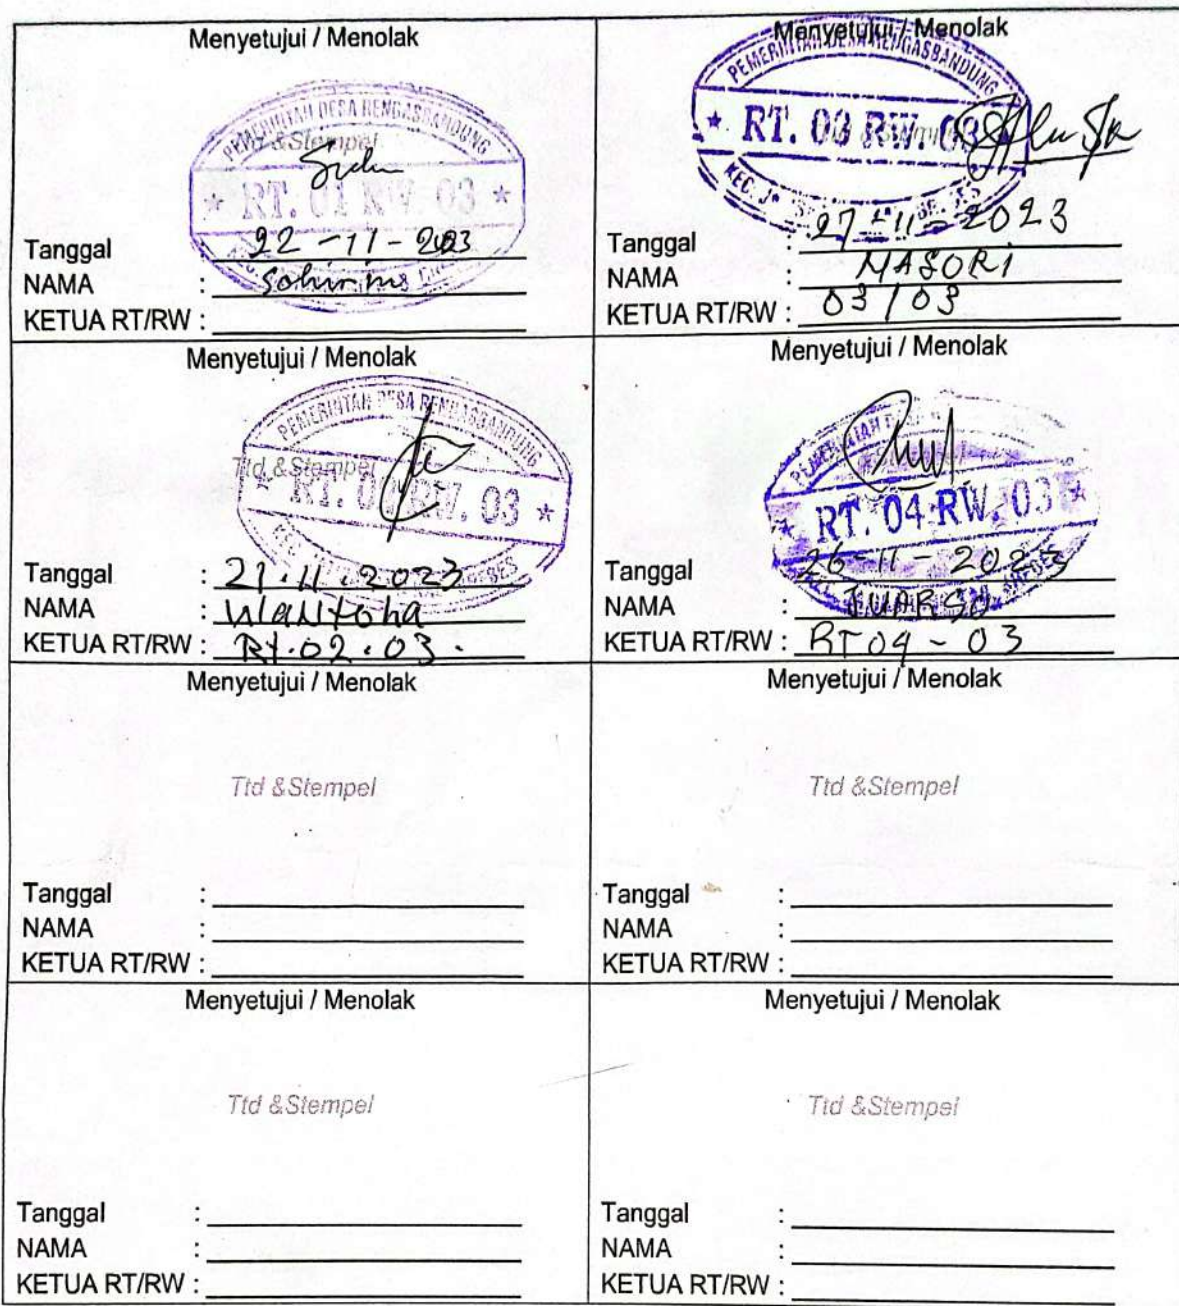 Menyetujui / Menolak
PEMERINTAH DESA RENGASBANDUNG
Ttd &Stempel
* RT. 01 RW. 03 *
Tanggal : 22-11-2023
NAMA :
KETUA RT/RW :
Menyetujui / Menolak
PEMERINTAH DESA RENGASBANDUNG
* RT. 03 RW. 03
Tanggal : 27-11-2023
NAMA : MASORI
KETUA RT/RW : 03/03
Menyetujui / Menolak
PEMERINTAH DESA RENGASBANDUNG
Ttd &Stempel
* RT. 02 RW. 03 *
Tanggal : 21.11.2023
NAMA : Wantoha
KETUA RT/RW : Rt.02.03.
Menyetujui / Menolak
PEMERINTAH
* RT. 04 RW. 03 *
Tanggal : 26-11-2023
NAMA : JUARSO
KETUA RT/RW : RT04-03
Menyetujui / Menolak
Ttd &Stempel
Tanggal :
NAMA :
KETUA RT/RW :
Menyetujui / Menolak
Ttd &Stempel
Tanggal :
NAMA :
KETUA RT/RW :
Menyetujui / Menolak
Ttd &Stempel
Tanggal :
NAMA :
KETUA RT/RW :
Menyetujui / Menolak
Ttd &Stempel
Tanggal :
NAMA :
KETUA RT/RW :